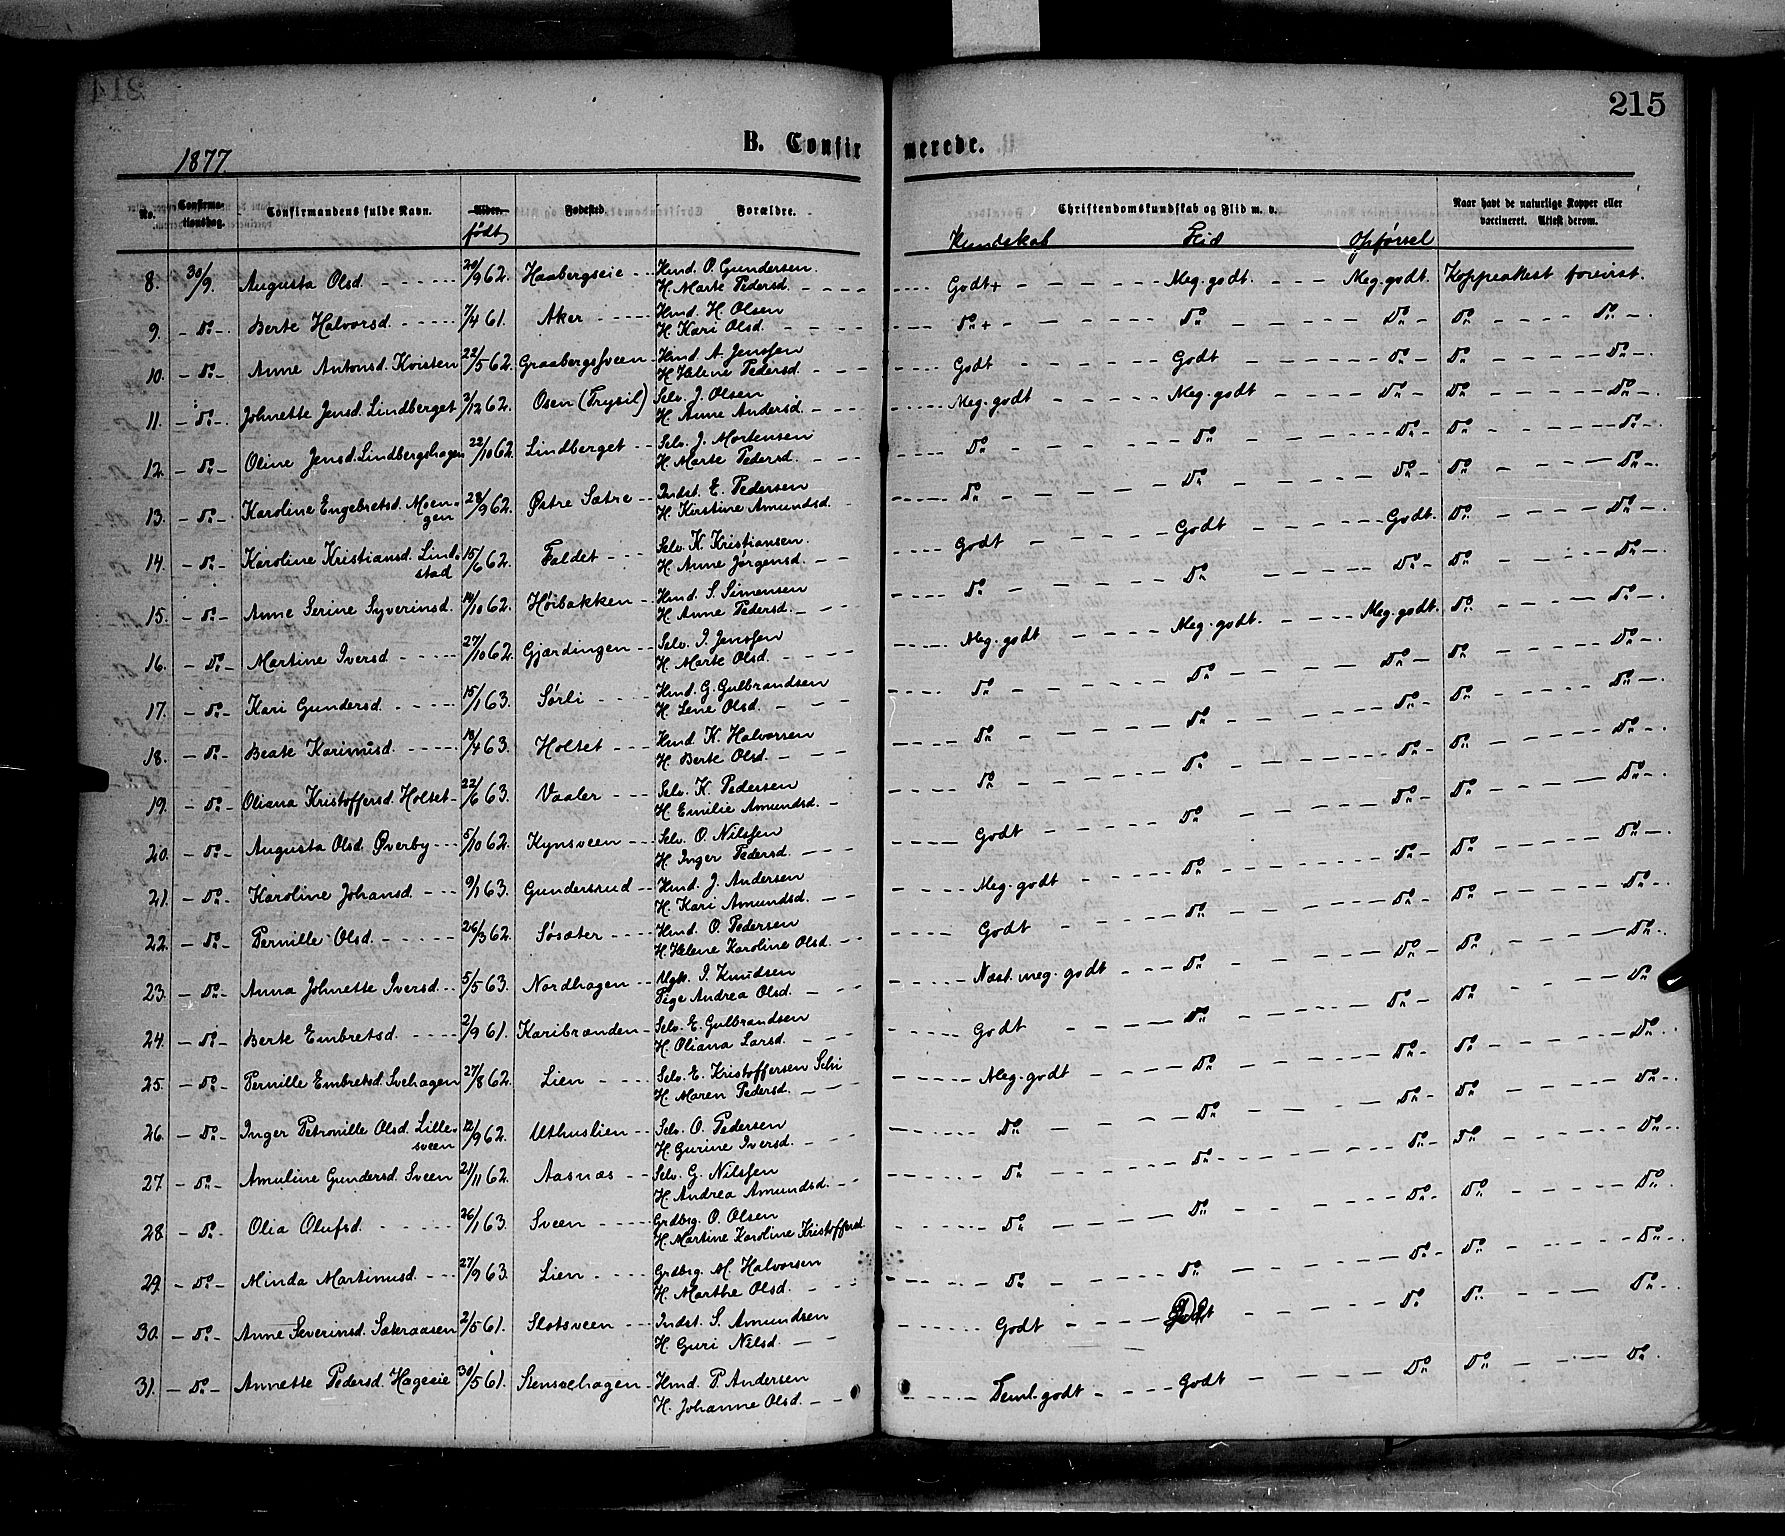 215
1877.
B. Confirmerede.
No. Confirmationsdag. Confirmandens fulde Navn. Alder. født Fødested. Forældre. Christendomskundskab og Flid m. v. Naar havt de naturlige Kopper eller vaccineret. Attest derom.
Kundskab Flid Opførsel
8. 30/9. Augusta Olsd. 20/9 62. Haabergseie Hmd. O. Gundersen. Godt+ Meg. godt. Meg. godt. Koppeattest forevist.
H. Marte Pedersd.
9. Do Berte Halvorsd. 7/4 61. Aker Hmd. H. Olsen Do+ Do Do Do Do
H. Kari Olsd.
10. Do Anne Antonsd. Kvisten 22/5 62. Graabergsveen Hmd. A. Jensen Godt Godt Do Do Do
H. Helene Pedersd.
11. Do Johnette Jensd. Lindberget 2/12 62. Osen (Trysil) Selv. J. Olsen Meg. godt Meg. godt Do Do Do
H. Anne Andersd.
12. Do Oline Jensd. Lindbergshagen 22/10 62. Lindberget Selv. J. Mortensen Do Do Do Do Do
H. Marte Pedersd.
13. Do Karoline Engebretsd. Moen- 28/9 62. Østre Sætre Indst. E. Pedersen Do Do Do Do Do
gen H. Kirstine Amundsd.
14. Do Karoline Kristiansd. Lind- 15/6 62. Faldet Selv. K. Kristiansen. Godt Godt Godt. Do Do
stad H. Anne Jørgensd.
15. Do Anne Serine Syverinsd. 14/10 62. Høibakken Hmd. S. Simensen Do Do Do Do Do
H. Anne Pedersd.
16. Do Martine Iversd. 27/10 62. Gjærdingen Selv. I. Jensen Meg. godt Meg. godt. Meg. godt. Do Do
H. Marte Olsd.
17. Do Kari Gundersd. 15/1 63. Sørli Hmd. G. Gulbrandsen Do Do Do Do Do
H. Lene Olsd.
18. Do Beate Karinusd. 18/4 63. Holtet Hmd. K. Halvorsen Do Do Do Do Do
H. Berte Olsd.
19. Do Oliana Kristoffersd. Holtet 22/6 63. Vaaler Selv. K. Pedersen Do Do Do Do Do
H. Emilie Amundsd.
20. Do Augusta Olsd. Øverby 5/10 62. Kynsveen Selv. O. Nilssen Godt Do Do Do Do
H. Inger Pedersd.
21. Do Karoline Johansd. 9/1 63. Gundersrud Hmd. J. Andersen Meg. godt Do Do Do Do
H. Kari Amundsd.
22. Do Pernille Olsd. 26/3 62. Søsæter Hmd. O. Pedersen Godt Do Do Do Do
H. Helene Karoline Olsd.
23. Do Anna Johnette Iversd. 5/5 63. Nordhagen Ugk. I. Knudsen Næst. meg. godt Do Do Do Do
Pige Andrea Olsd.
24. Do Berte Embretsd. 2/9 61. Karibranden Selv. E. Gulbrandsen Godt Do Do Do Do
H. Oliana Larsd.
25. Do Pernille Embretsd. Svehagen 27/8 62. Lien Selv. E. Kristoffersen Meg. godt Do Do Do Do
H. Maren Pedersd.
26. Do Inger Petronille Olsd. Lille- 12/9 62. Uthuslien Selv. O. Pedersen Do Do Do Do Do
sveen H. Gurine Iversd.
27. Do Amuline Gundersd. Sveen 21/11 62. Aasnæs Selv. G. Nilssen Do Do Do Do Do
H. Andrea Amundsd.
28. Do Olia Olufsd. 26/1 63. Sveen Grdbrg. O. Olsen Do Do Do Do Do
H. Martine Karoline Kristoffersd
29. Do Minda Martinusd. 27/9 63. Lien Grdbrg. M. Halvorsen Do Do Do Do Do
H. Marthe Olsd.
30. Do Anne Severinsd. Sæteraasen 2/5 61. Slotsveen Indst. S. Amundsen Godt Godt Do Do Do
H. Guri Nilsd.
31. Do Annette Pedersd. Hageeie 30/5 61. Stensæhagen Hmd. P. Andersen Teml. godt Godt Do Do Do
H. Johanne Olsd.